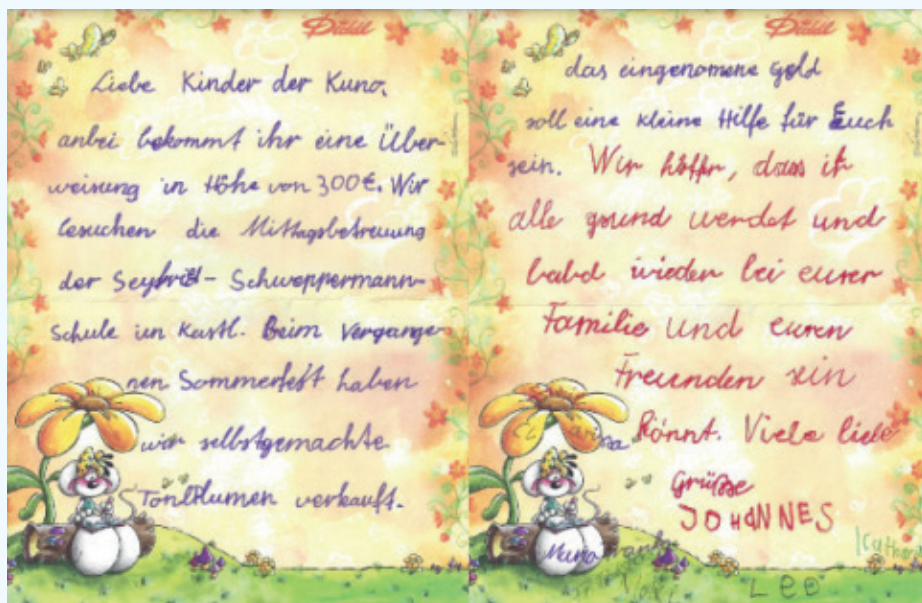 Diddl
Liebe Kinder der Kuno,
anbei bekommt ihr eine Über-
weisung in Höhe von 300€. Wir
besuchen die Mittagsbetreuung
der Seyfried-Schweppermann-
Schule in Kastl. Beim Vergange-
nen Sommerfest haben
wir selbstgemachte
Tonblumen verkauft.
Diddl
das eingenomene Geld
soll eine kleine Hilfe für Euch
sein. Wir hoffen, dass ihr
alle gesund werdet und
bald wieder bei eurer
Familie und euren
Freunden sein
könnt. Viele liebe
Grüße
JOHANNES
LEO